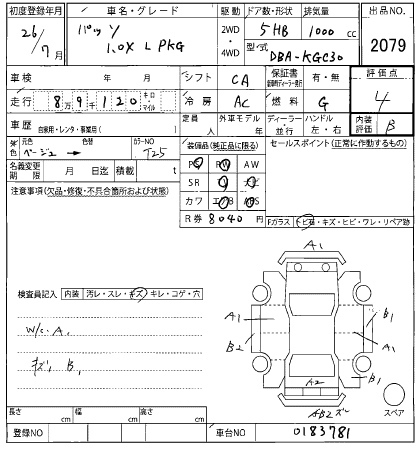 初度登録年月 車名・グレード 駆動 ドア数・形状 排気量 出品NO
26/7月 パッソ 1.0X L PKG 2WD・4WD 5HB 1000cc 2079
型式 DBA-KGC30
車検 年 月 シフト CA 保証書 有・無 評価点 4
走行 8万9千120 キロ・マイル 冷房 AC 燃料 G
車歴 自家用・レンタ・事業用( ) 定員 人 外車モデル 年 ディーラー・並行 ハンドル 左・右 内装評価 B
色 元色 ベージュ 色替 カラーNO T25 装備品(純正品に限る) セールスポイント(正常に作動するもの)
名義変更期限 月 日迄 積載 t PS PW AW
注意事項(欠品・修復・不具合箇所および状態) SR ナビ
カワ エアB ABS
R券 8040円
Fガラス トビ石・キズ・ヒビ・ワレ・リペア跡
A1
検査員記入 内装 汚レ・スレ・キズ・キレ・コゲ・穴
W/c. A1
A1 B1
B2 A1
キズ B1
A2 B1
B2 スペア
長さ cm 幅 cm 高さ cm
登録NO 車台NO 0183781